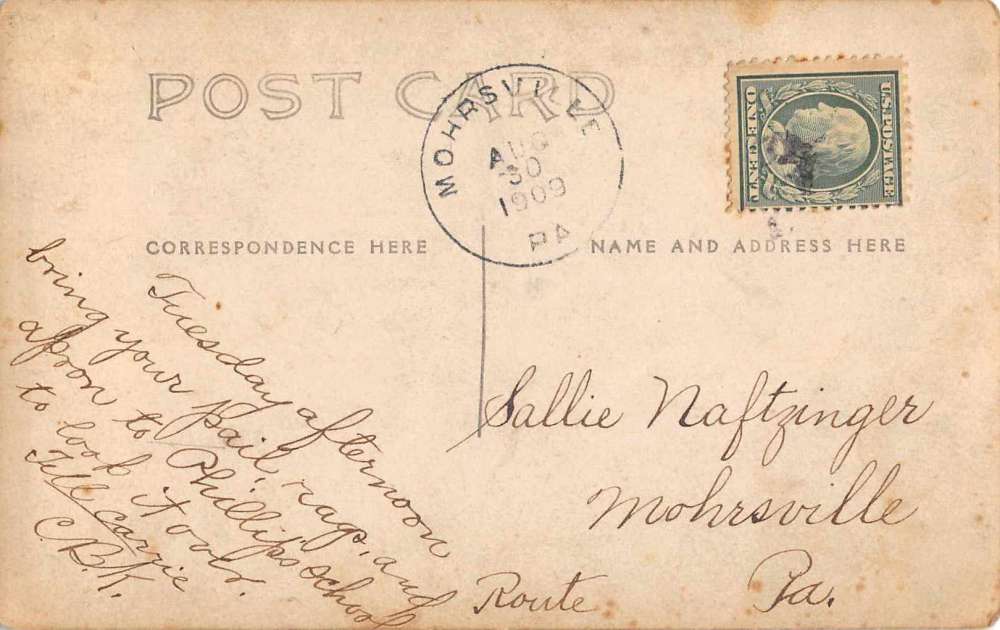 POST CARD
MOHRSVILLE
AUG
30
1909
PA
U.S. POSTAGE
ONE CENT
CORRESPONDENCE HERE
NAME AND ADDRESS HERE
Tuesday afternoon
bring your pail, rags, and
apron to Phillips school
to look it over.
Tell Carrie
C.B.K.
Sallie Naftzinger
Mohrsville
Route Pa.